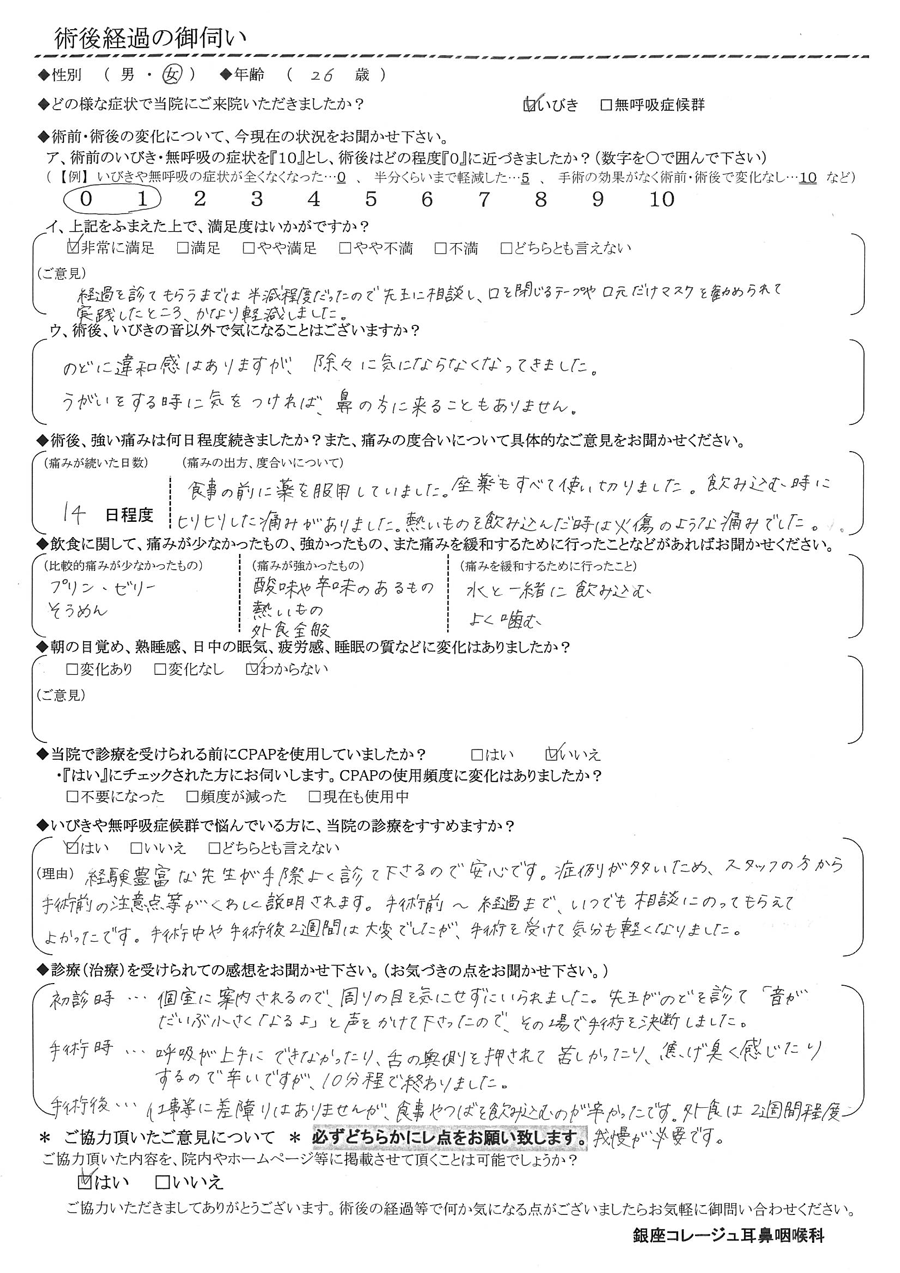 術後経過の御伺い
◆性別 （ 男 ・ 女 ） ◆年齢 （ 26 歳 ）
◆どの様な症状で当院にご来院いただきましたか？ ☑いびき □無呼吸症候群
◆術前・術後の変化について、今現在の状況をお聞かせ下さい。
ア、術前のいびき・無呼吸の症状を『10』とし、術後はどの程度『0』に近づきましたか？（数字を〇で囲んで下さい）
（【例】いびきや無呼吸の症状が全くなくなった…0 、 半分くらいまで軽減した…5 、 手術の効果がなく術前・術後で変化なし…10 など）
0 1 2 3 4 5 6 7 8 9 10
イ、上記をふまえた上で、満足度はいかがですか？
☑非常に満足 □満足 □やや満足 □やや不満 □不満 □どちらとも言えない
（ご意見）
経過を診てもらうまでは半減程度だったので先生に相談し、口を閉じるテープや口元だけマスクを勧められて
実践したところ、かなり軽減しました。
ウ、術後、いびきの音以外で気になることはございますか？
のどに違和感はありますが、除々に気にならなくなってきました。
うがいをする時に気をつければ、鼻の方に来ることもありません。
◆術後、強い痛みは何日程度続きましたか？また、痛みの度合いについて具体的なご意見をお聞かせください。
（痛みが続いた日数） （痛みの出方、度合いについて）
食事の前に薬を服用していました。座薬もすべて使い切りました。飲み込む時に
14 日程度 ヒリヒリした痛みがありました。熱いものを飲み込んだ時は火傷のような痛みでした。
◆飲食に関して、痛みが少なかったもの、強かったもの、また痛みを緩和するために行ったことなどがあればお聞かせください。
（比較的痛みが少なかったもの） （痛みが強かったもの） （痛みを緩和するために行ったこと）
プリン・ゼリー 酸味や辛味のあるもの 水と一緒に飲み込む
そうめん 熱いもの よく噛む
外食全般
◆朝の目覚め、熟睡感、日中の眠気、疲労感、睡眠の質などに変化はありましたか？
□変化あり □変化なし ☑わからない
（ご意見）
◆当院で診療を受けられる前にCPAPを使用していましたか？ □はい ☑いいえ
・『はい』にチェックされた方にお伺いします。CPAPの使用頻度に変化はありましたか？
□不要になった □頻度が減った □現在も使用中
◆いびきや無呼吸症候群で悩んでいる方に、当院の診療をすすめますか？
☑はい □いいえ □どちらとも言えない
（理由） 経験豊富な先生が手際よく診て下さるので安心です。症例が多いため、スタッフの方から
手術前の注意点等がくわしく説明されます。手術前～経過まで、いつでも相談にのってもらえて
よかったです。手術中や手術後2週間は大変でしたが、手術を受けて気分も軽くなりました。
◆診療（治療）を受けられての感想をお聞かせ下さい。（お気づきの点をお聞かせ下さい。）
初診時 … 個室に案内されるので、周りの目を気にせずにいられました。先生がのどを診て「音が
だいぶ小さくなるよ」と声をかけて下さったので、その場で手術を決断しました。
手術時 … 呼吸が上手にできなかったり、舌の奥側を押されて苦しかったり、焦げ臭く感じたり
するので辛いですが、10分程で終わりました。
手術後 … 仕事等に差障りはありませんが、食事やつばを飲み込むのが辛かったです。外食は2週間程度
我慢が必要です。
＊ ご協力頂いたご意見について ＊ 必ずどちらかにレ点をお願い致します。
ご協力頂いた内容を、院内やホームページ等に掲載させて頂くことは可能でしょうか？
☑はい □いいえ
ご協力いただきましてありがとうございます。術後の経過等で何か気になる点がございましたらお気軽に御問い合わせください。
銀座コレージュ耳鼻咽喉科